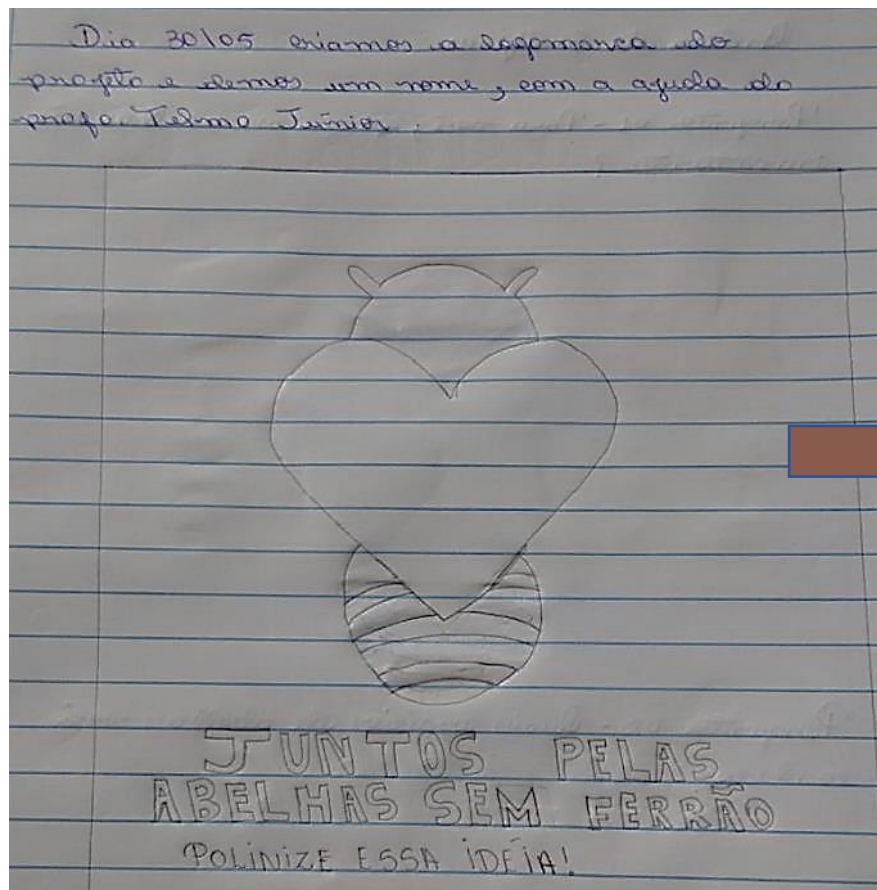 Dia 30/05 criamos a logomarca do
projeto e demos um nome, com a ajuda do
profo Telmo Junior.
JUNTOS PELAS
ABELHAS SEM FERRÃO
POLINIZE ESSA IDÉIA!